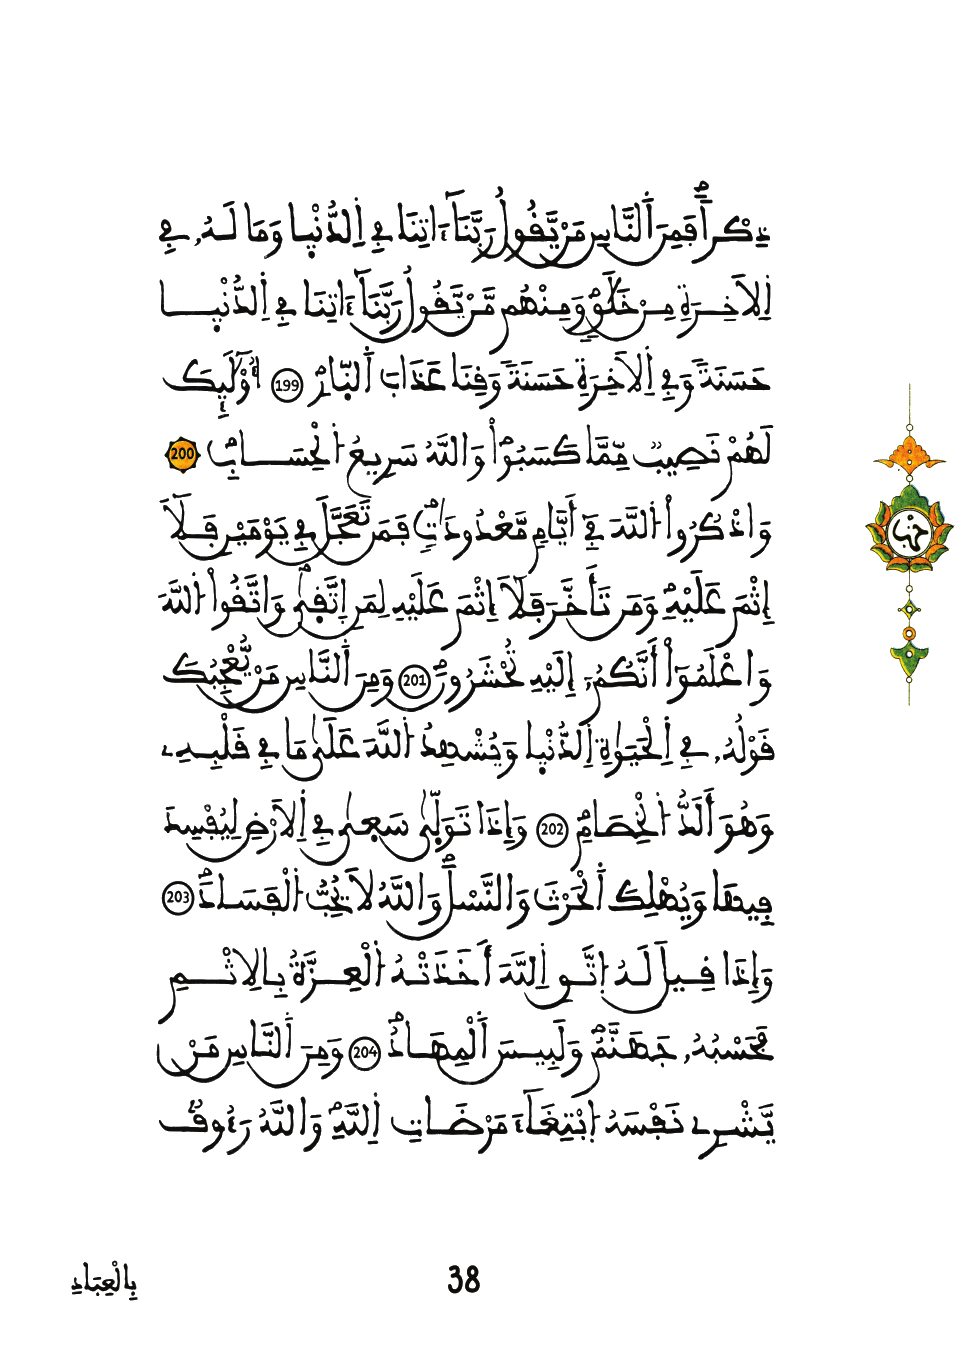 ذِكْراٗۖ فَمِنَ اَ۬لنَّاسِ مَنْ يَّقُولُ رَبَّنَآ ءَاتِنَا فِے اِ۬لدُّنْي۪ا وَمَا لَهُۥ فِے
اِ۬لَاخِرَةِ مِنْ خَلَٰقٖۖ وَمِنْهُم مَّنْ يَّقُولُ رَبَّنَآ ءَاتِنَا فِے اِ۬لدُّنْي۪ا
حَسَنَةٗ وَفِے اِ۬لَاخِرَةِ حَسَنَةٗ وَقِنَا عَذَابَ اَ۬لنّ۪ارِۖ 199 أُوْلَٰٓئِكَ
لَهُمْ نَصِيبٞ مِّمَّا كَسَبُواْۖ وَاللَّهُ سَرِيعُ اُ۬لْحِسَابِۖ 200
وَاذْكُرُواْ اُ۬للَّهَ فِےٓ أَيَّامٖ مَّعْدُودَٰتٖۖ فَمَن تَعَجَّلَ فِے يَوْمَيْنِ فَلَآ
إِثْمَ عَلَيْهِۖ وَمَن تَأَخَّرَ فَلَآ إِثْمَ عَلَيْهِ لِمَنِ اِ۪تَّق۪ىٰۖ وَاتَّقُواْ اُ۬للَّهَ
وَاعْلَمُوٓاْ أَنَّكُمُۥٓ إِلَيْهِ تُحْشَرُونَۖ 201 وَمِنَ اَ۬لنَّاسِ مَنْ يُّعْجِبُكَ
قَوْلُهُۥ فِے اِ۬لْحَيَوٰةِ اِ۬لدُّنْي۪ا وَيُشْهِدُ اُ۬للَّهَ عَلَىٰ مَا فِے قَلْبِهِۦ
وَهُوَ أَلَدُّ اُ۬لْخِصَامِۖ 202 وَإِذَا تَوَلّ۪ىٰ سَع۪ىٰ فِے اِ۬لَارْضِ لِيُفْسِدَ
فِيهَا وَيُهْلِكَ اَ۬لْحَرْثَ وَالنَّسْلَۖ وَاللَّهُ لَا يُحِبُّ اُ۬لْفَسَادَۖ 203
وَإِذَا قِيلَ لَهُ اُ۪تَّقِ اِ۬للَّهَ أَخَذَتْهُ اُ۬لْعِزَّةُ بِالِاثْمِ
فَحَسْبُهُۥ جَهَنَّمُۖ وَلَبِيسَ اَ۬لْمِهَادُۖ 204 وَمِنَ اَ۬لنَّاسِ مَنْ
يَّشْرِے نَفْسَهُ اُ۪بْتِغَآءَ مَرْضَاتِ اِ۬للَّهِۖ وَاللَّهُ رَءُوفُۢ
حزب
بِالْعِبَادِ
38